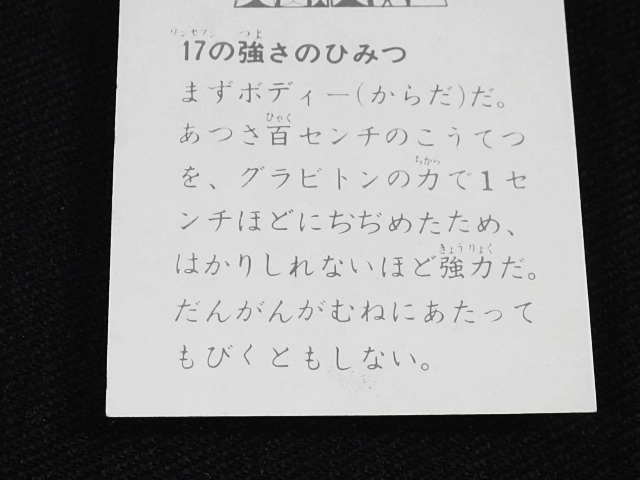 17の強さのひみつ
まずボディー(からだ)だ。
あつさ百センチのこうてつ
を、グラビトンの力で1セ
ンチほどにちぢめたため、
はかりしれないほど強力だ。
だんがんがむねにあたって
もびくともしない。